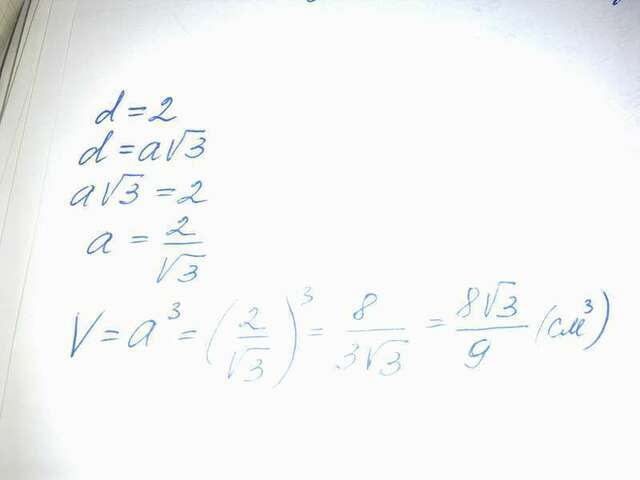 d = 2
d = a√3
a√3 = 2
a = 2/√3
V = a³ = (2/√3)³ = 8/3√3 = 8√3/9 (см³)